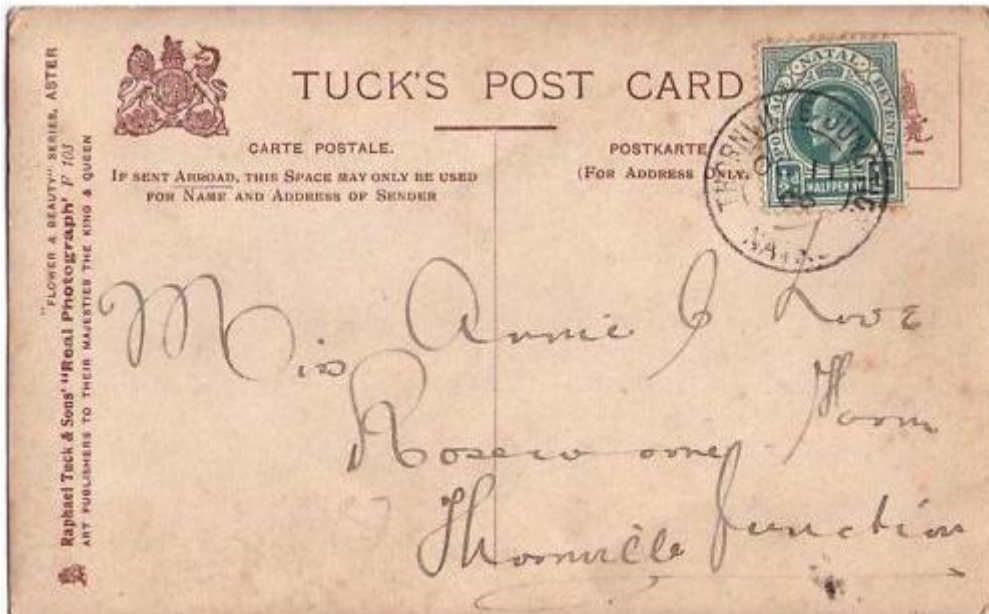 "FLOWER & BEAUTY" SERIES, ASTER
Raphael Tuck & Sons' "Real Photograph" P 103
ART PUBLISHERS TO THEIR MAJESTIES THE KING & QUEEN
TUCK'S POST CARD
CARTE POSTALE.
IF SENT ABROAD, THIS SPACE MAY ONLY BE USED
FOR NAME AND ADDRESS OF SENDER
POSTKARTE
(FOR ADDRESS ONLY.
NATAL
POSTAGE
REVENUE
HALFPENNY
THORNVILLE JUNCTION
NATAL
Miss Annie
Farm
Thornville Junction